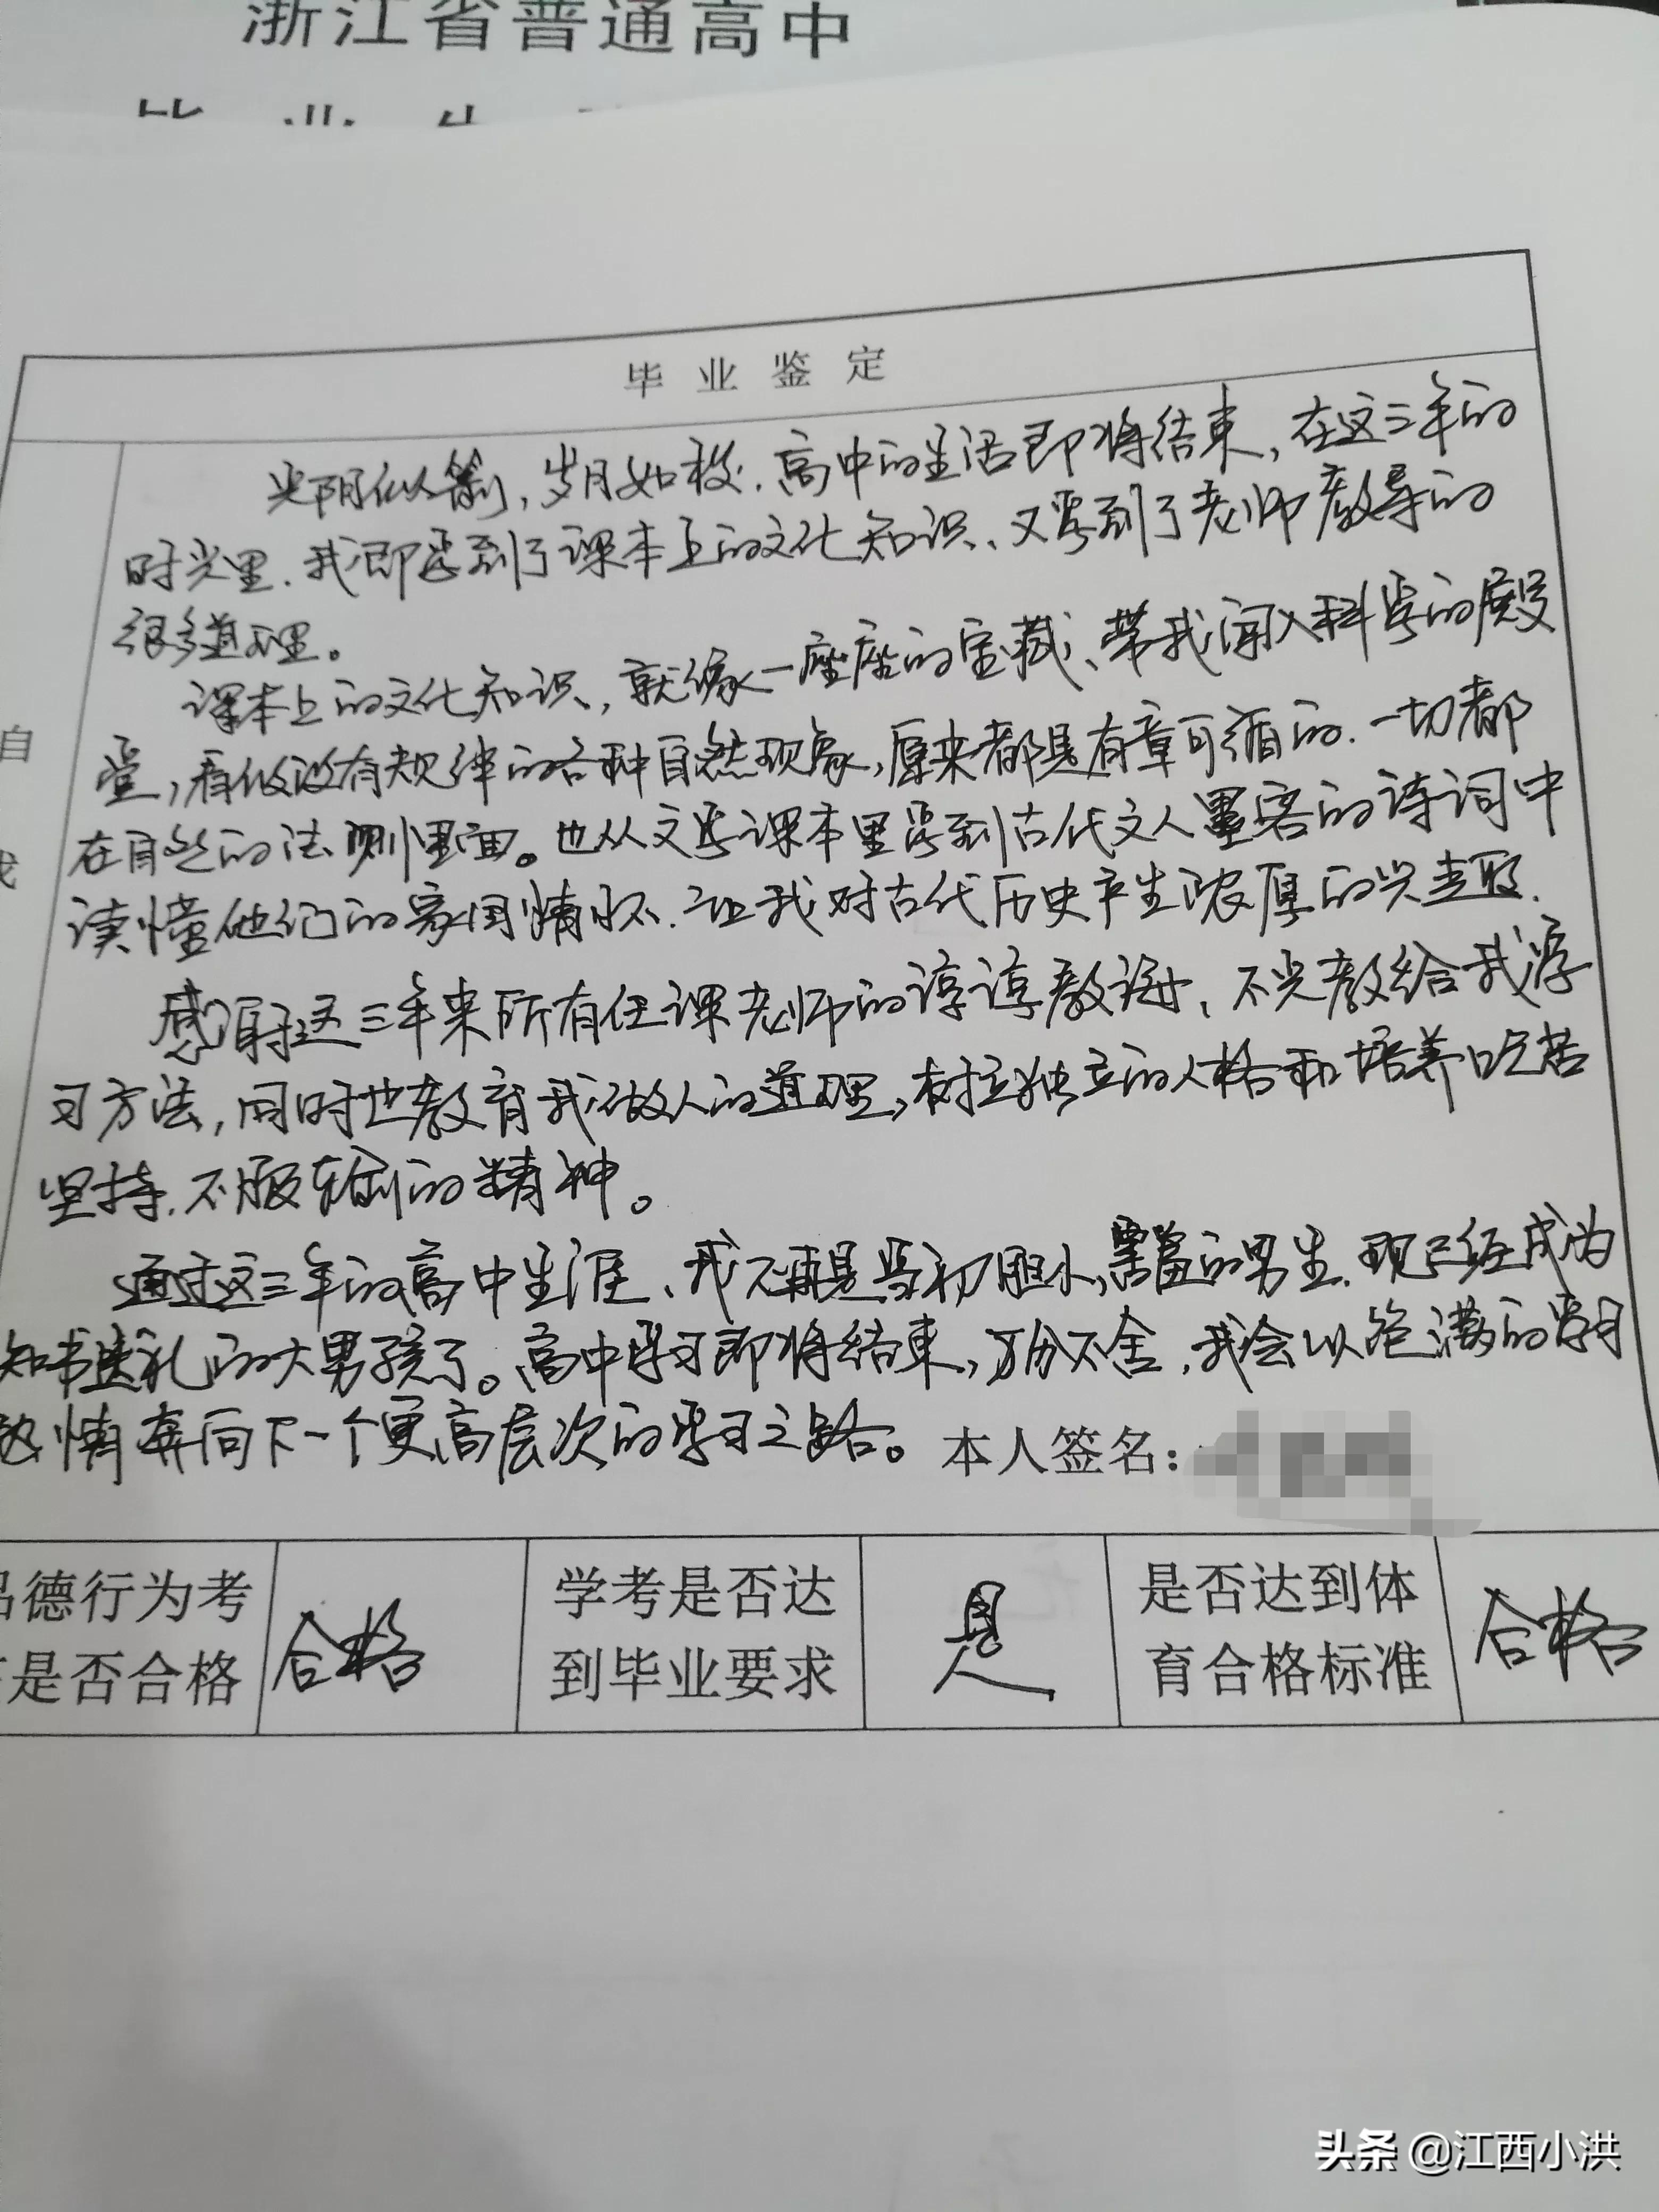 浙江省普通高中
毕业生
毕业鉴定
光阴似箭,岁月如梭.高中的生活即将结束,在这三年的
时光里.我即学到了课本上的文化知识、又学到了老师教导的
很多道理。
课本上的文化知识,就像一座座的宝藏、带我闯入科学的殿
堂,看似没有规律的各种自然现象,原来都是有章可循的.一切都
在自然的法则里面。也从文学课本里学到古代文人墨客的诗词中
读懂他们的家国情怀.让我对古代历史产生浓厚的兴趣.
感谢这三年来所有任课老师的谆谆教诲,不光教给我学
习方法,同时也教育我做人的道理,树立独立的人格和培养吃苦
坚持.不服输的精神。
通过这三年的高中生涯、我不再是当初胆小,害羞的男生.现已经成为
知书达礼的大男孩了。高中学习即将结束,万分不舍,我会以饱满的学习
热情奔向下一个更高层次的学习之路。本人签名:
自
我
品德行为考
是否合格
合格
学考是否达
到毕业要求
是
是否达到体
育合格标准
合格
头条 @江西小洪